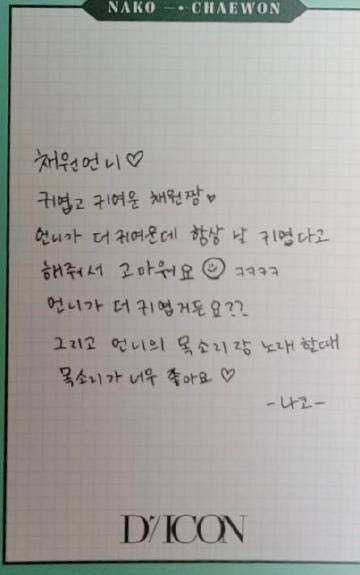 NAKO —• CHAEWON
채원언니♡
귀엽고 귀여운 채원짱♥
언니가 더 귀여운데 항상 날 귀엽다고
해줘서 고마워요 ☺ ㅋㅋㅋㅋ
언니가 더 귀엽거든요??
그리고 언니의 목소리랑 노래 할때
목소리가 너무 좋아요 ♡
-나코-
D/ICON